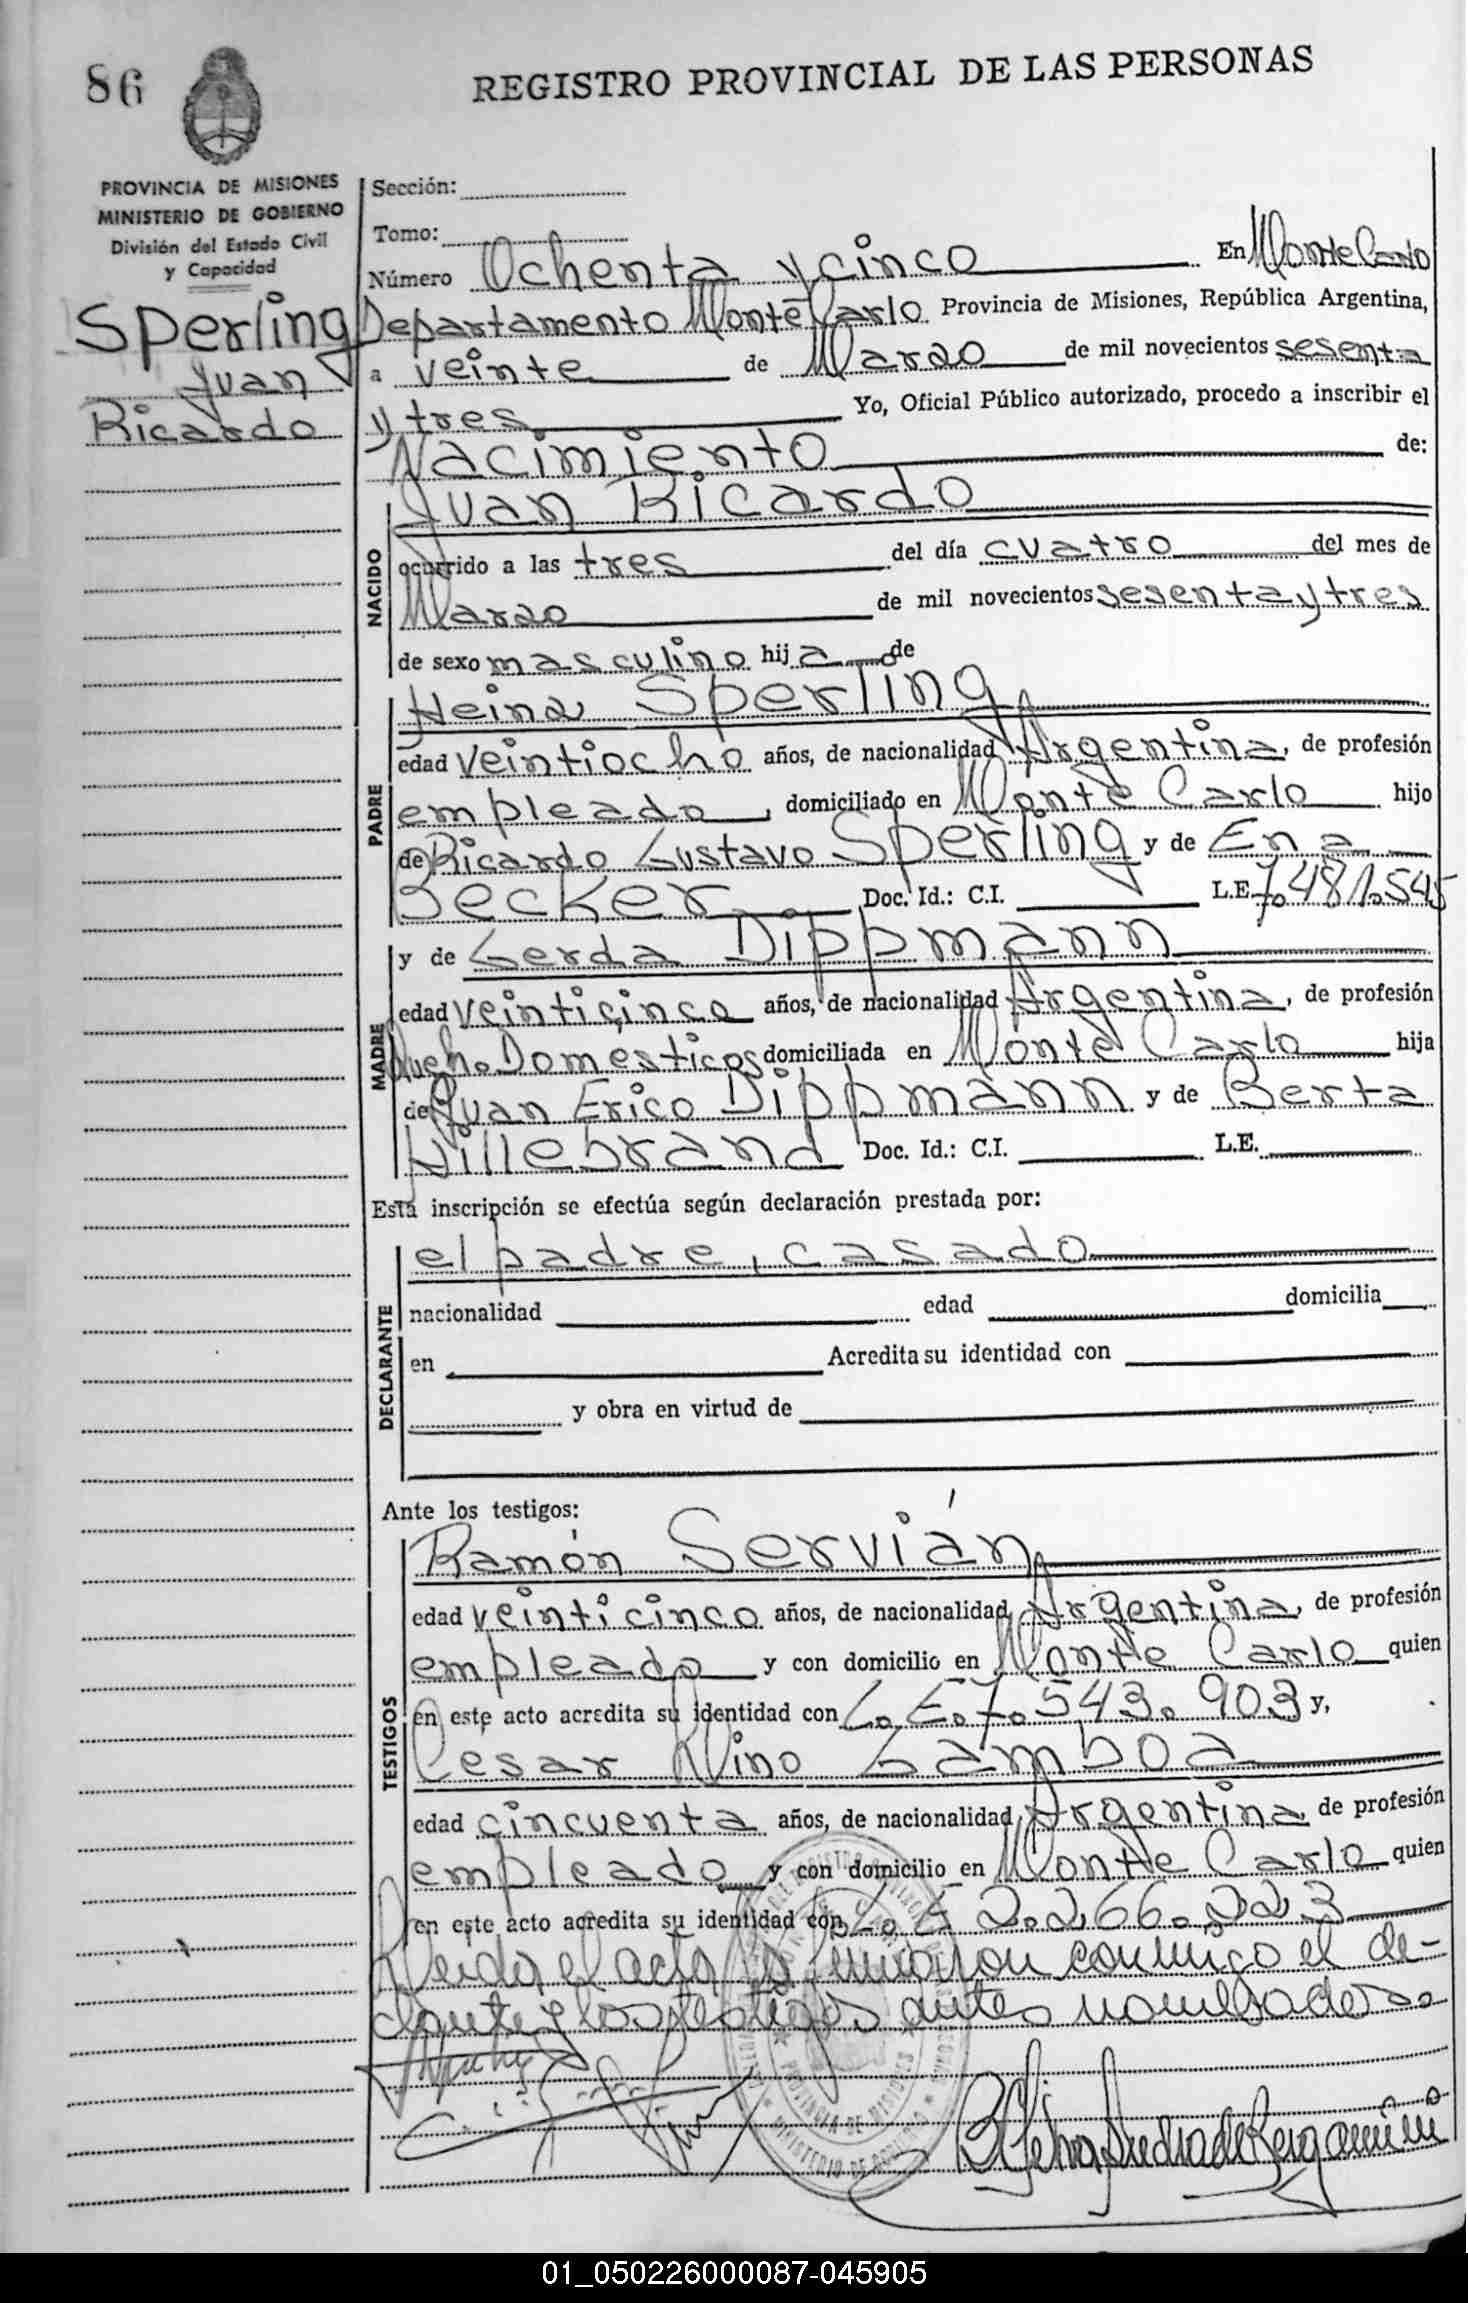 86
REGISTRO PROVINCIAL DE LAS PERSONAS
PROVINCIA DE MISIONES
MINISTERIO DE GOBIERNO
División del Estado Civil
y Capacidad
Sperling
Juan
Ricardo
Sección:
Tomo:
Número Ochenta y cinco En Monte Carlo
Departamento Monte Carlo Provincia de Misiones, República Argentina,
a veinte de Marzo de mil novecientos sesenta
y tres Yo, Oficial Público autorizado, procedo a inscribir el
Nacimiento de:
NACIDO
Juan Ricardo
ocurrido a las tres del día cuatro del mes de
Marzo de mil novecientos sesenta y tres
de sexo masculino hij a de
PADRE
Heinz Sperling
edad veintiocho años, de nacionalidad Argentina, de profesión
empleado, domiciliado en Monte Carlo hijo
de Ricardo Gustavo Sperling y de Ena
Becker Doc. Id.: C.I. L.E. 7.481.545
MADRE
y de Gerda Dippmann
edad veinticinco años, de nacionalidad Argentina, de profesión
Queh. Domésticos domiciliada en Monte Carlo hija
de Juan Erico Dippmann y de Berta
Hillebrand Doc. Id.: C.I. L.E.
Esta inscripción se efectúa según declaración prestada por:
DECLARANTE
el padre, casado
nacionalidad edad domicilia
en Acredita su identidad con
y obra en virtud de
Ante los testigos:
TESTIGOS
Ramón Servián
edad veinticinco años, de nacionalidad Argentina, de profesión
empleado y con domicilio en Monte Carlo quien
en este acto acredita su identidad con L.E. 7.543.903 y,
Cesar Gamboa
edad cincuenta años, de nacionalidad Argentina de profesión
empleado y con domicilio en Monte Carlo quien
en este acto acredita su identidad con L.E 2.266.223
Leida el acta la firmaron conmigo el de-
clarante y los testigos antes nombrados.
PROVINCIA DE MISIONES
MINISTERIO DE GOBIERNO
01_050226000087-045905